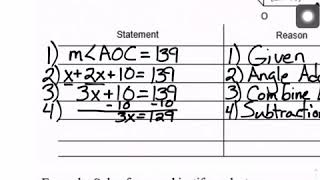 O
Statement Reason
1) m∠AOC = 139 1) Given
2) x + 2x + 10 = 139 2) Angle Ad
3) 3x + 10 = 139 3) Combine
4) -10 -10 4) Subtraction
3x = 129